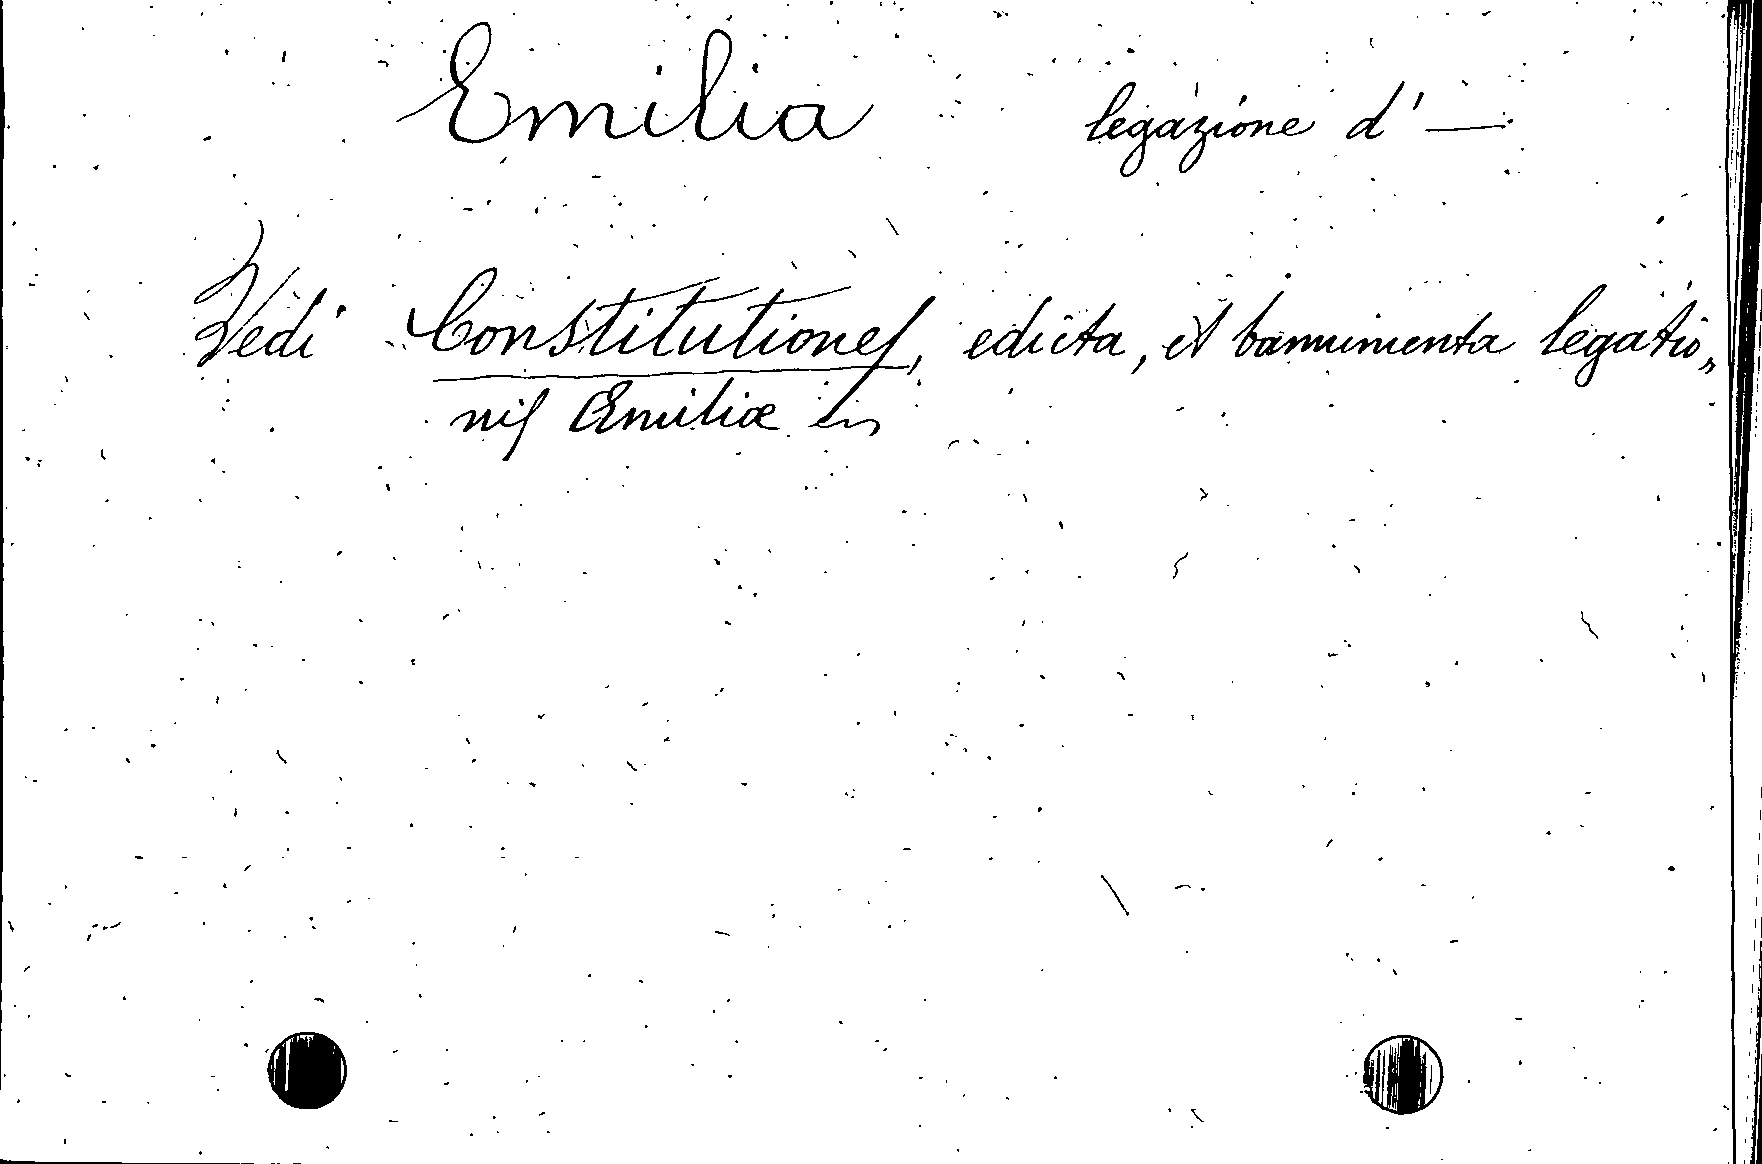 Emilia legazione d' —
Vedi Constitutiones, edicta, et bannimenta legatio„
nis Emiliæ